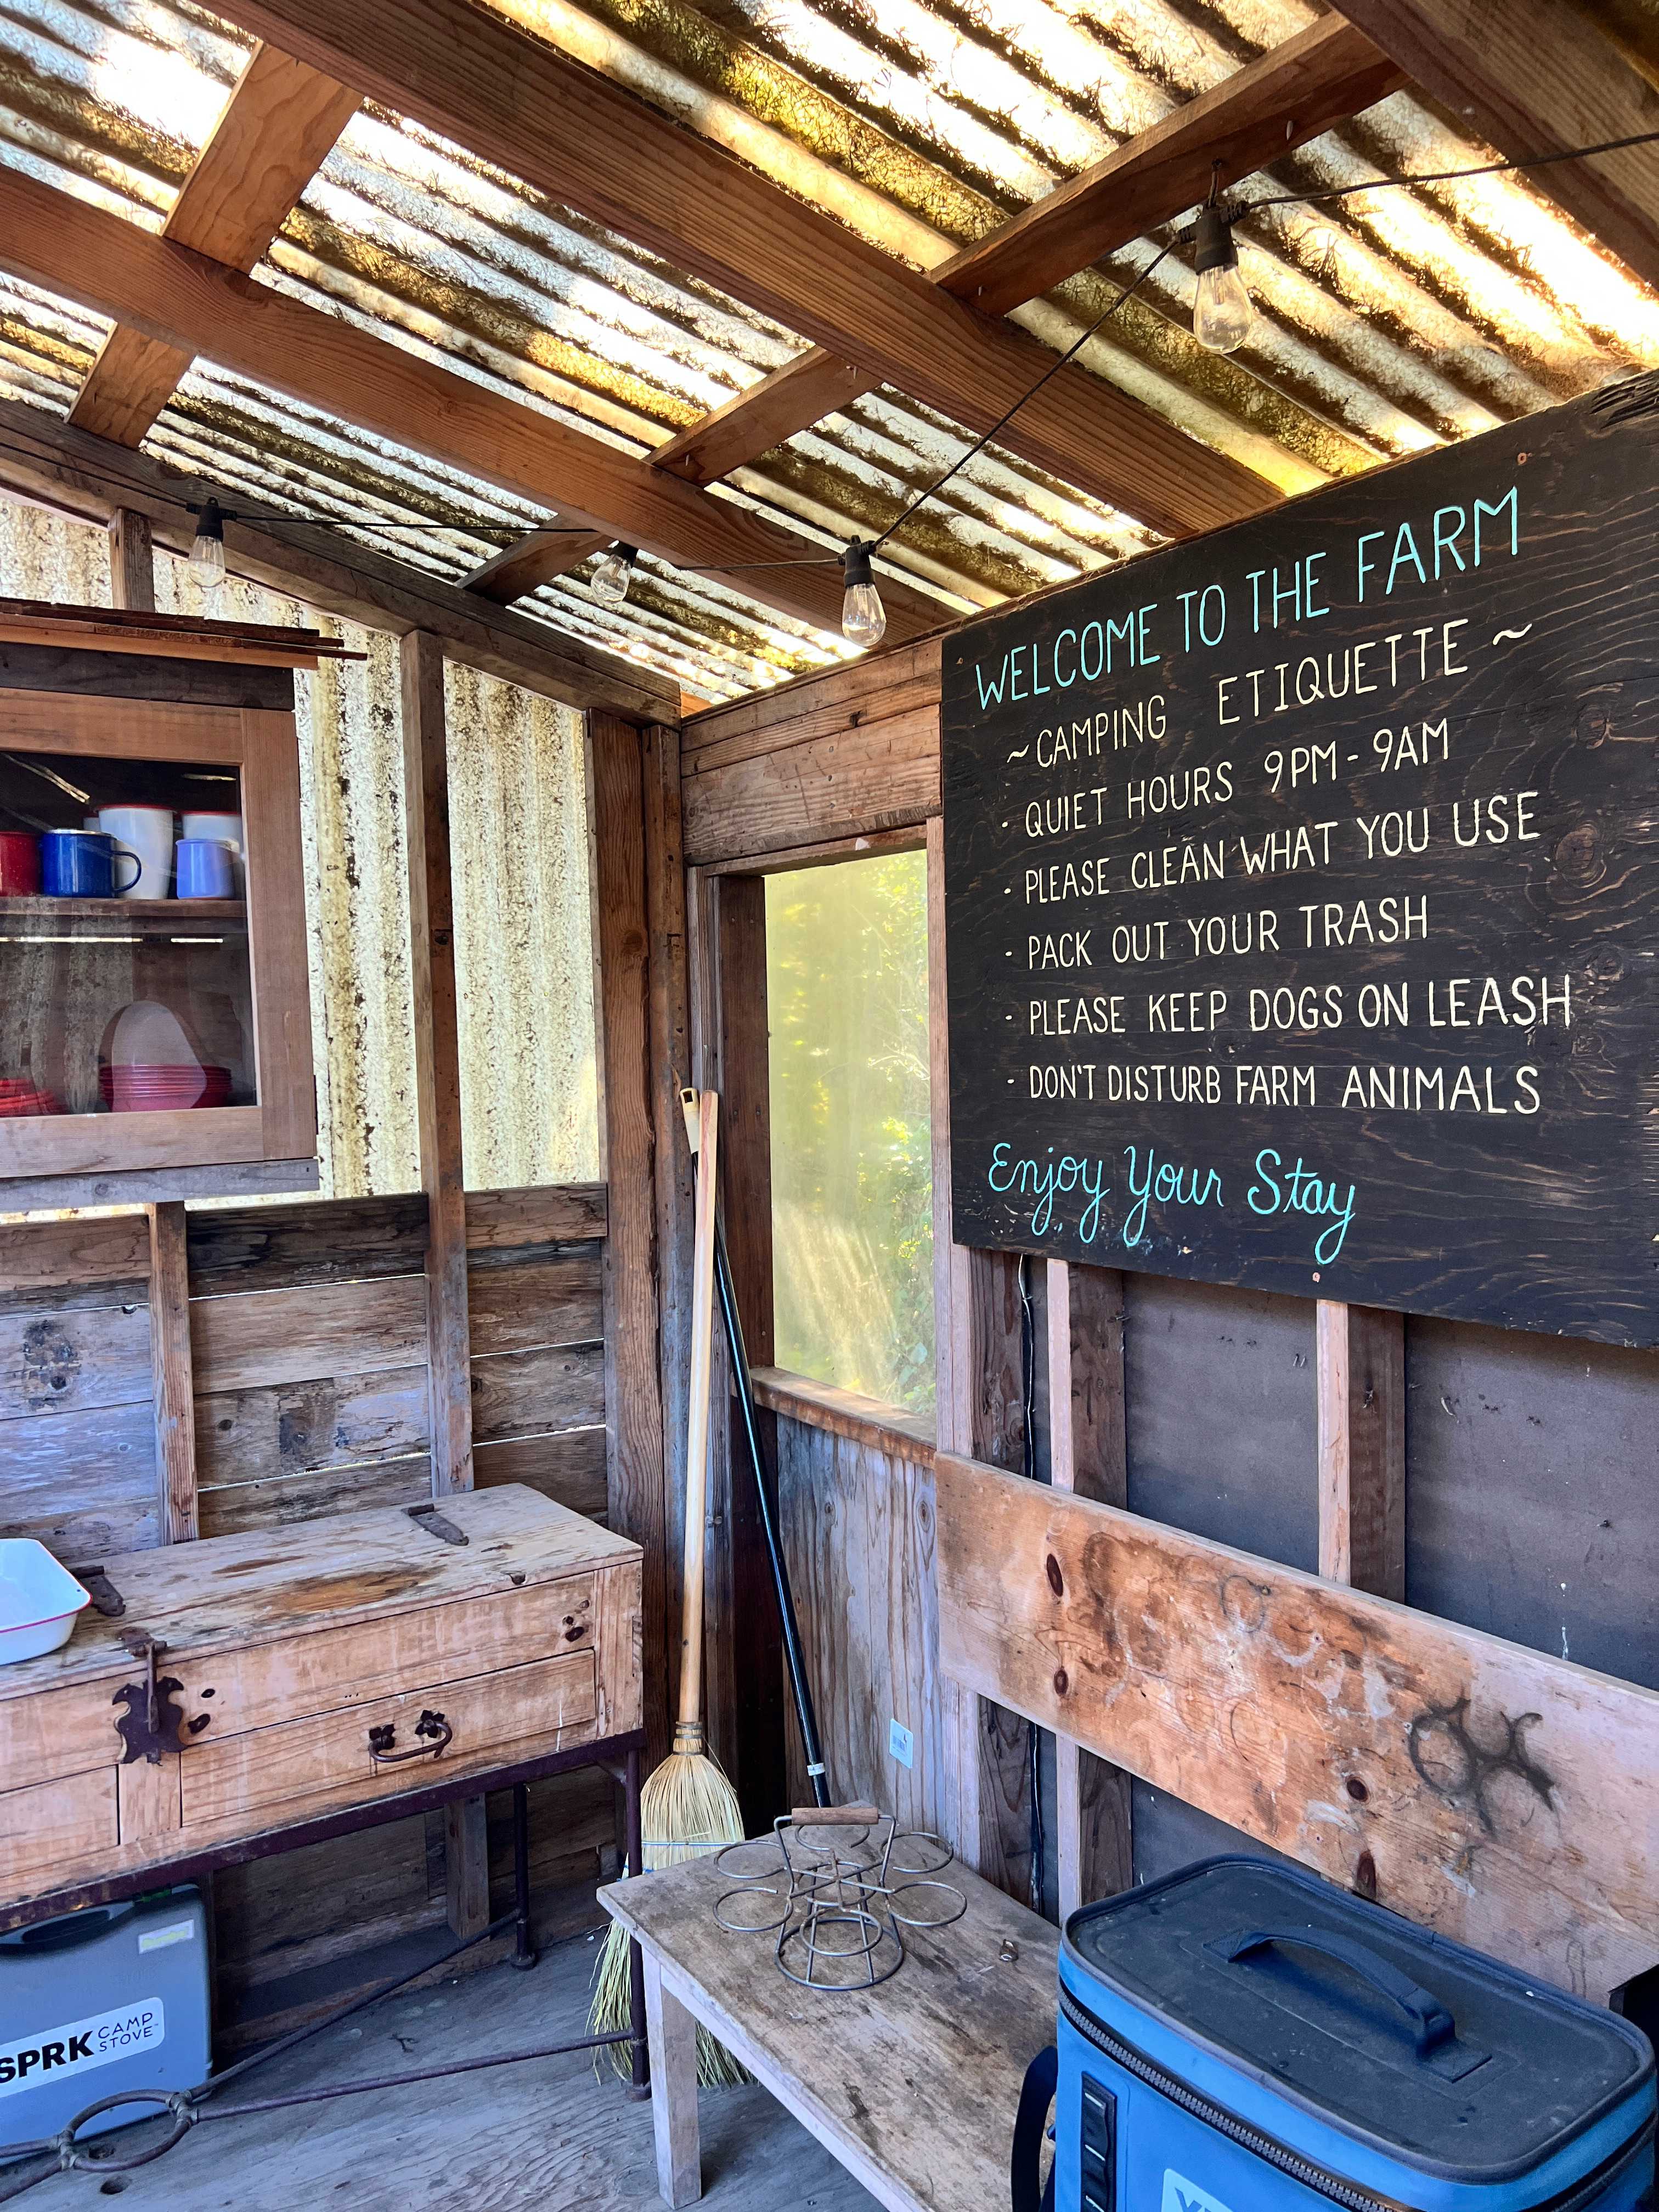 WELCOME TO THE FARM
~CAMPING ETIQUETTE~
· QUIET HOURS 9PM-9AM
· PLEASE CLEAN WHAT YOU USE
· PACK OUT YOUR TRASH
· PLEASE KEEP DOGS ON LEASH
· DON'T DISTURB FARM ANIMALS
Enjoy Your Stay
SPRK CAMP
STOVE